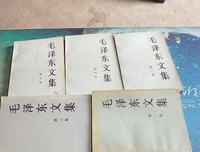 毛泽东文集
毛泽东文集
毛泽东文集
毛泽东文集
第二卷
毛泽东文集
第一卷